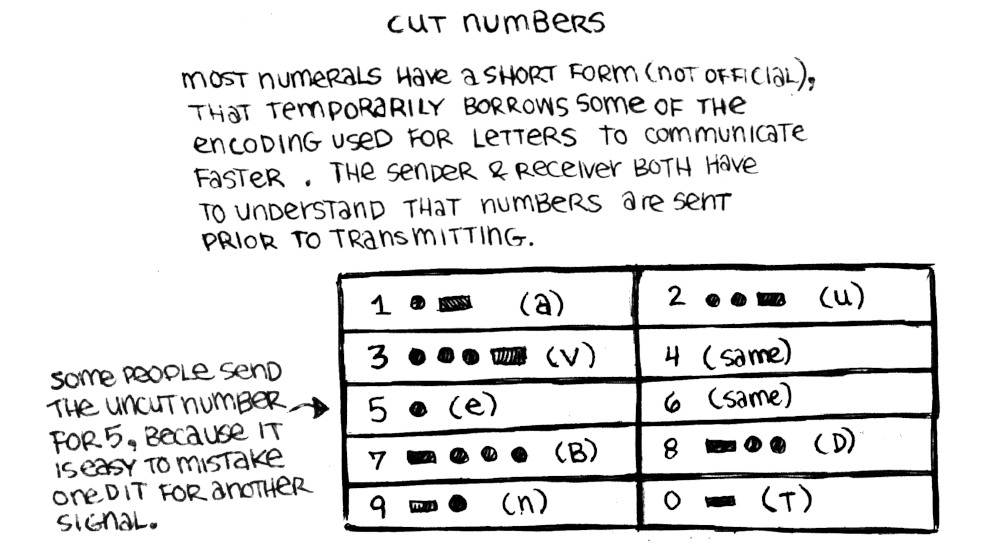 CUT NUMBERS
MOST NUMERALS HAVE A SHORT FORM (NOT OFFICIAL),
THAT TEMPORARILY BORROWS SOME OF THE
ENCODING USED FOR LETTERS TO COMMUNICATE
FASTER. THE SENDER & RECEIVER BOTH HAVE
TO UNDERSTAND THAT NUMBERS ARE SENT
PRIOR TO TRANSMITTING.
1 (A)
2 (U)
3 (V)
4 (SAME)
5 (E)
6 (SAME)
7 (B)
8 (D)
9 (N)
0 (T)
SOME PEOPLE SEND
THE UNCUT NUMBER
FOR 5, BECAUSE IT
IS EASY TO MISTAKE
ONE DIT FOR ANOTHER
SIGNAL.